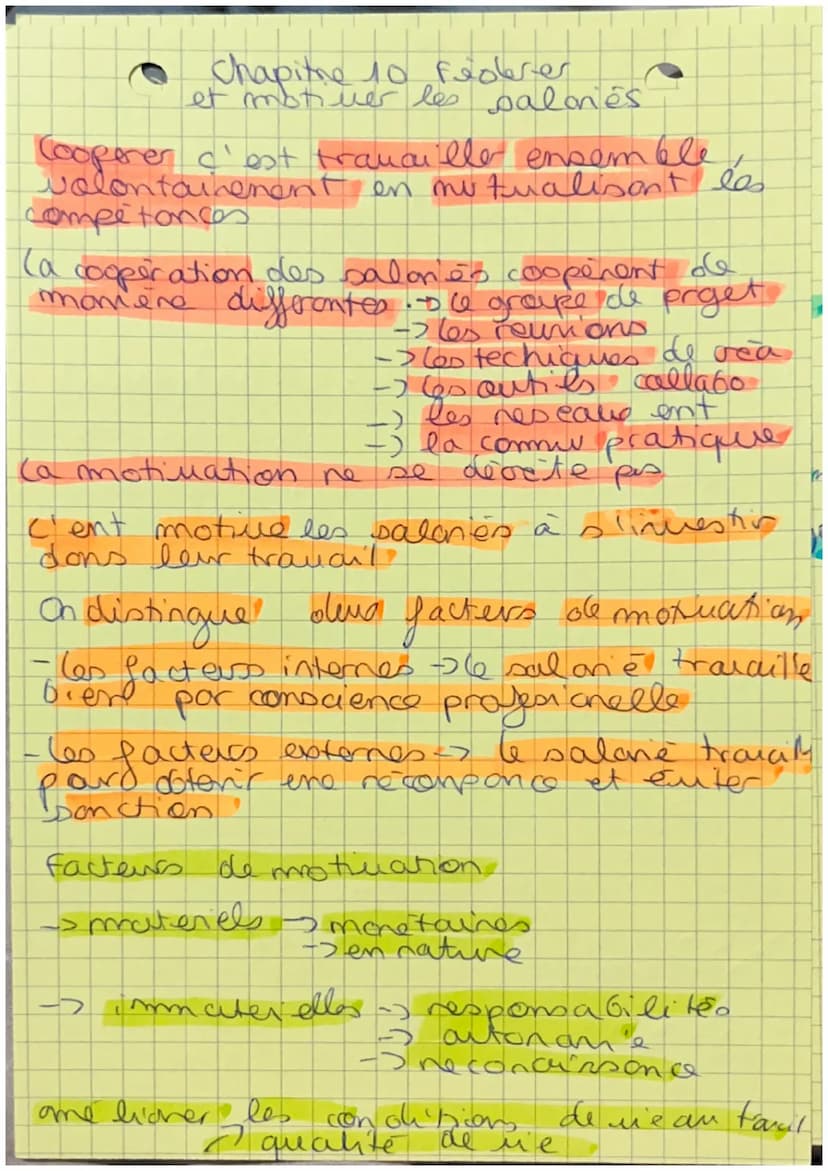 Chapitre 10 Fédérer
et motiver les salariés
Coopérer c'est travailler ensemble,
volontairement en mutualisant les
compétances
La coopération des salariés coopèrent de
manière differentes. → le groupe de projet
→ les reunions
→ les techiques de créa
→ les outils collabo
→ les reseaux ent
→ la commu pratique
La motivation ne se décrète pas
C'ent motive les salariés à s'investir
dans leur travail
On distingue deux facters de motivation
- les facteurs internes → le salarié travaille
bien par conscience profesionnelle
- les facteurs externes → le salarié travail
pour obtenir une réconpance et éviter
sanction
facteurs de motivation
→ materiels → monétaires
→ en nature
→ immaterielles → responsabilités
→ autonomie
→ reconnaissance
améliorer les conditions de vie au travil
→ qualité de vie